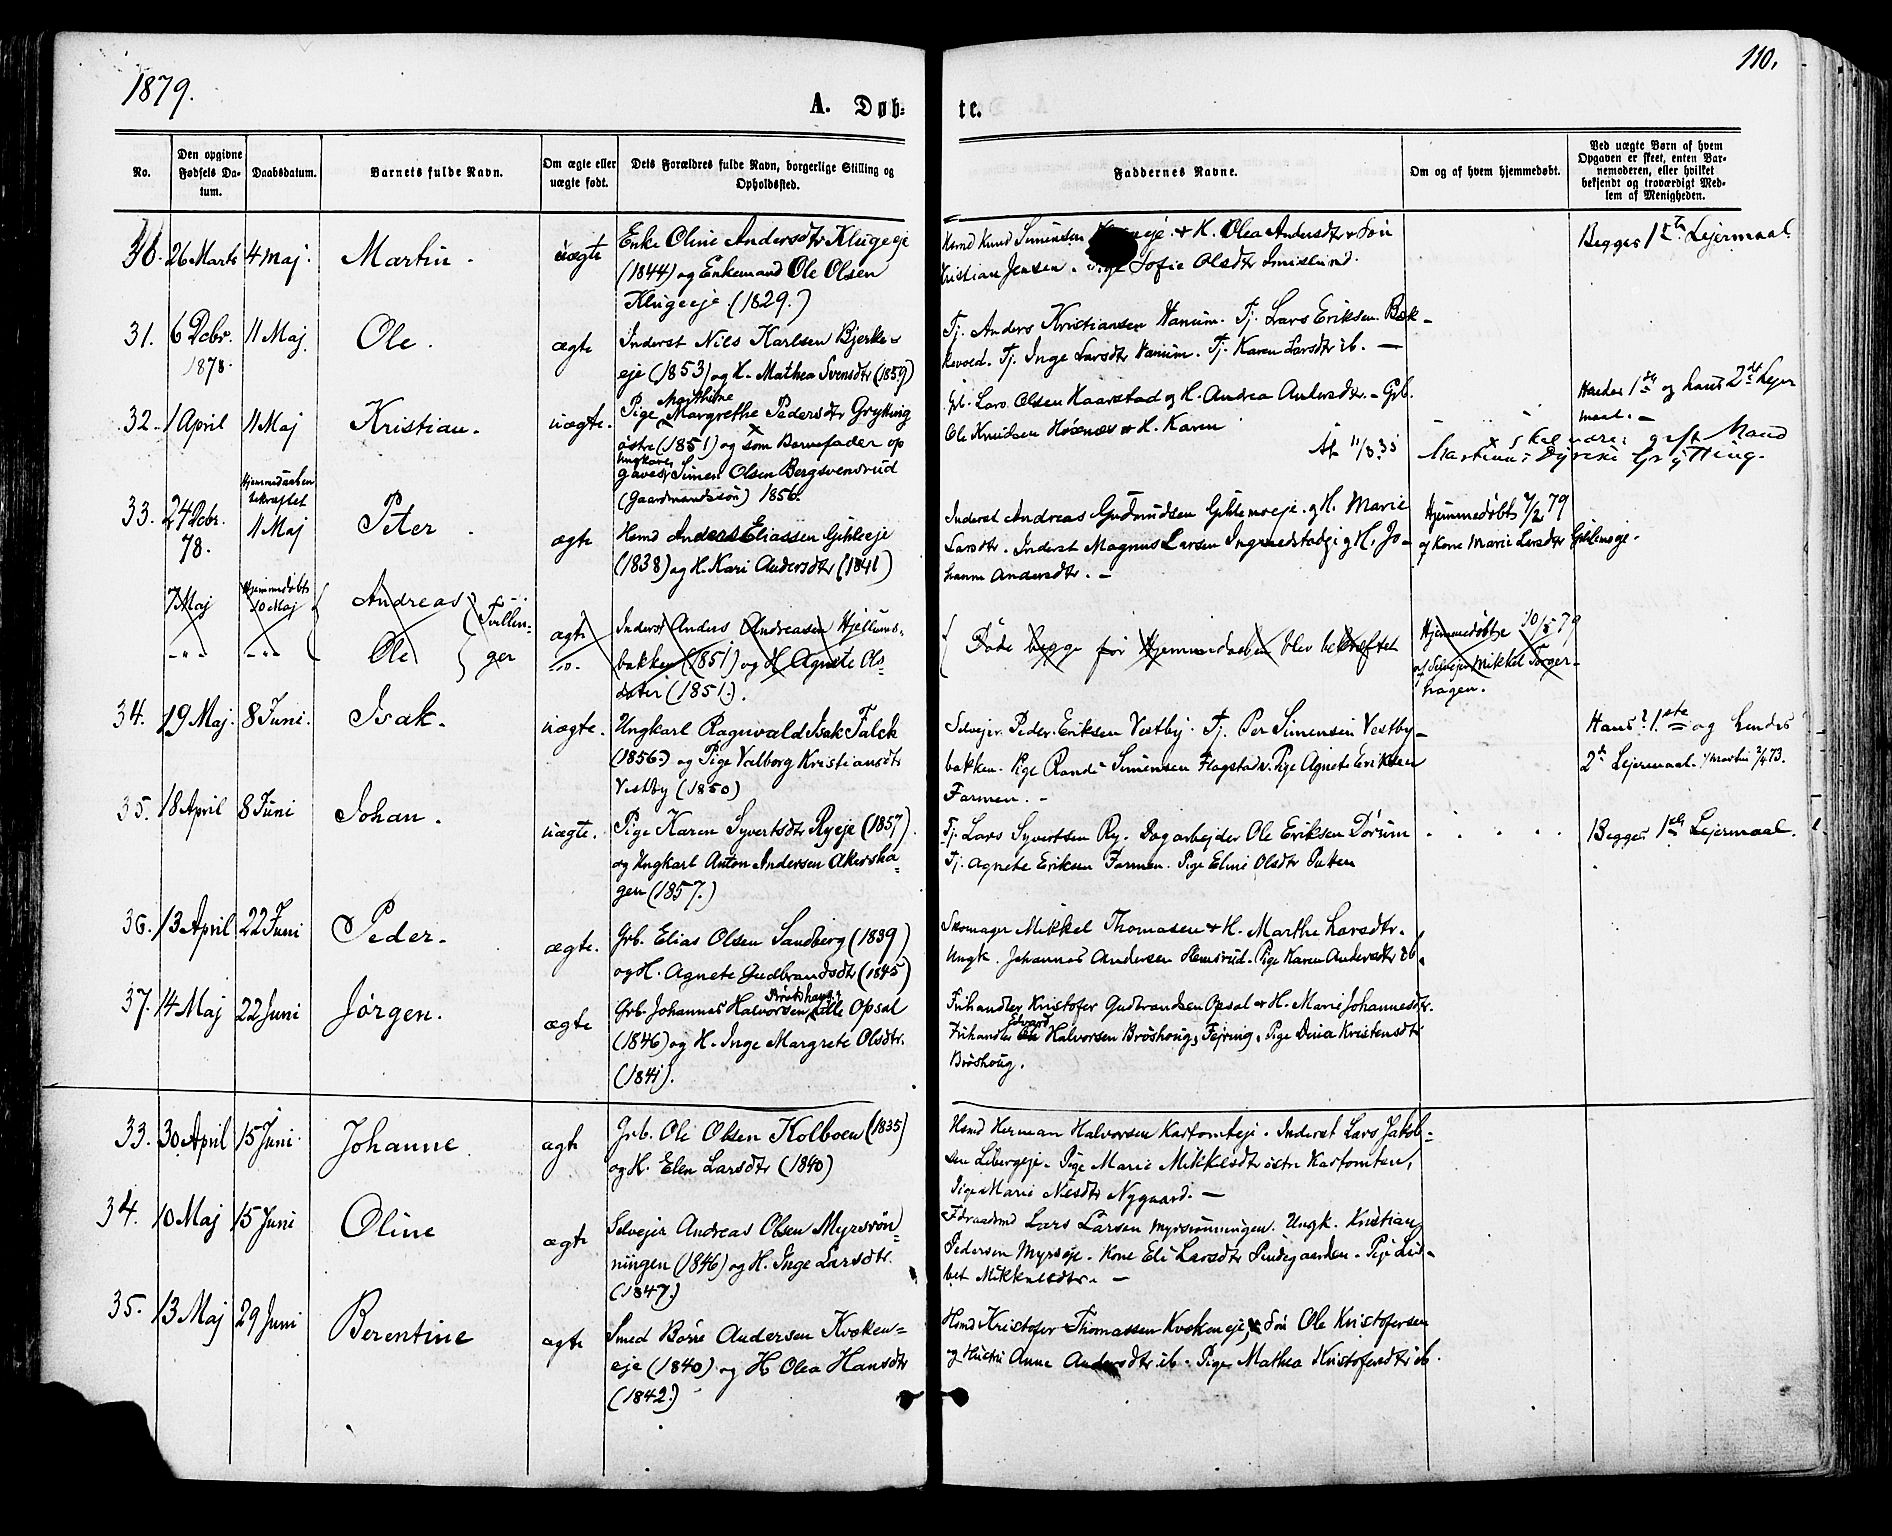 1879.
110.
A. Døb-
te.
No.
Den opgivne Fødsels Datum.
Daabsdatum.
Barnets fulde Navn.
Om ægte eller uægte født.
Dets Forældres fulde Navn, borgerlige Stilling og Opholdssted.
Faddernes Navne.
Om og af hvem hjemmedøbt.
Ved uægte Børn af hvem Opgaven er skeet, enten Barnemoderen, eller hvilket bekjendt og troværdigt Medlem af Menigheden.
30. 26 Marts 4 Maj. Martin. uægte
Enke Oline Andersdtr Klugeeje
(1844) og Enkemand Ole Olsen
Klugeeje. (1829.)
Hsmd Knud Simensen + H. Olea Andersdtr + Søn
Kristian Jensen. Pige Sofie Olsdtr
Begges 1ste Lejermaal.
31. 6 Decbr. 1878. 11 Maj. Ole. ægte
Inderst Nils Karlsen Bjerke-
eje (1853) og H. Mathea Svensdtr (1859)
Tj. Anders Kristiansen Vanum. Tj. Lars Eriksen Bæk-
kevold. Tj. Inge Larsdtr Vanum. Tj. Karen Larsdtr ib. —
32. 1 April 11 Maj Kristian. uægte.
Marthine
Pige Margrethe Pedersdtr Grytting
østre (1851) og som Barnefader op
ungkarl
gaves Simen Olsen Bergsvensrud
(Gaardmandssøn) 1856.
Grb. Lars Olsen Haarstad og H. Andrea Andersdtr. - Grb.
Ole Knudsen + H. Karen
Hendes 1ste og hans 2det Lejer
maal. —
skal være: gift Mand
Grytting.
33. 24 Decbr. 78.
Hjemmedaaben
bekræftet
11 Maj Peter. ægte
Hsmd Anders Eliassen Gihleeje
(1838) og H. Kari Andersdtr (1841)
Inderst Andreas Gudmudsen Gihlemoeje. og H. Marie
Larsdtr. Inderst Magnus Larsen og H. Jo-
hanne Andersdtr. —
Hjemmedøbt 79
af Kone Marie Larsdtr Gihlmoeje.
7 Maj
Hjemmedøbt
10 Maj
Andreas
Ole
Tvillin-
ger
ægte
Inderst Anders Andreasen Hjellums-
bakken (1851) og H. Agnete Ols-
datter (1851.).
Døde begge før Hjemmedaaben blev bekræftet
Hjemmedøbte 10/5 79
af Selvejer Mikkel Torger-
hagen.
34. 19 Maj. 8 Juni. Isak. uægte.
Ungkarl Ragnvald Isak Falck
(1856.) og Pige Valborg Kristiansdtr
Vestby (1850)
Selvejer Peder Eriksen Vestby. Tj. Per Simensen Vestby-
bakken. Pige Randi Simensen Flagstad. Pige Agnete Eriksen
Farmen. -
Hans? 1ste og hendes
2det Lejermaal.
35. 18 April 8 Juni Johan. uægte.
Pige Karen Syvertsdtr Ryeje (1857).
og Ungkarl Anton Andersen Akersha-
gen (1857.)
Tj. Lars Syvertsen Ry. Dagarbejder Ole Eriksen Dørum
Tj. Agnete Eriksen Farmen. Pige Eline Olsdtr
Begges 1ste Lejermaal.
36. 13 April 22 Juni Peder. ægte.
Grb. Elias Olsen Sandberg (1839)
og H. Agnete Gudbrandsdtr (1845)
Skomager Mikkel Thomasen + H. Marthe Larsdtr.
Ungk. Johannes Andersen Hemsrud. Pige Karen Andersdtr ib.
37. 14 Maj 22 Juni Jørgen. ægte
Grb. Johannes Halvorsen lille Opsal
(1846) og H. Inge Margrete Olsdtr.
(1841).
Frihandler Kristofer Gudbrandsen Opsal + H. Marie Johannesdtr.
Edvard
Frihandler Halvorsen Brøshoug, Fejring, Pige Dina Kristensdtr
Brøshoug.
33. 30 April 15 Juni. Johanne ægte
Grb. Ole Olsen Kolboen (1835)
og H. Elen Larsdtr (1840)
Hsmd Herman Halvorsen Karlomteje. Inderst Lars Jakob-
sen Libergeje. Pige Marie Mikkelsdtr østre Karlomten,
Pige Marie Nilsdtr Nygaard. —
34. 10 Maj 15 Juni Oline ægte
Selvejer Andreas Olsen Myrsrøn-
ningen (1846) og H. Inge Larsdtr.
(1847.)
Føraadmd Lars Larsen Myrsrønningen. Ungk. Kristian
Pedersen Myrsøje. Kone Eli Larsdtr Lindegaarden. Pige Lis-
bet Mikkelsdtr. —
35. 13 Maj 29 Juni Berentine ægte
Smed Børre Andersen Kvæken-
eje (1840) og H. Olea Hansdtr
(1842.)
Hsmd Kristofer Thomassen Kvækeneje, Søn Ole Kristofersen
og Hustru Anne Andersdtr ib. Pige Mathea Kristofersdtr ib.